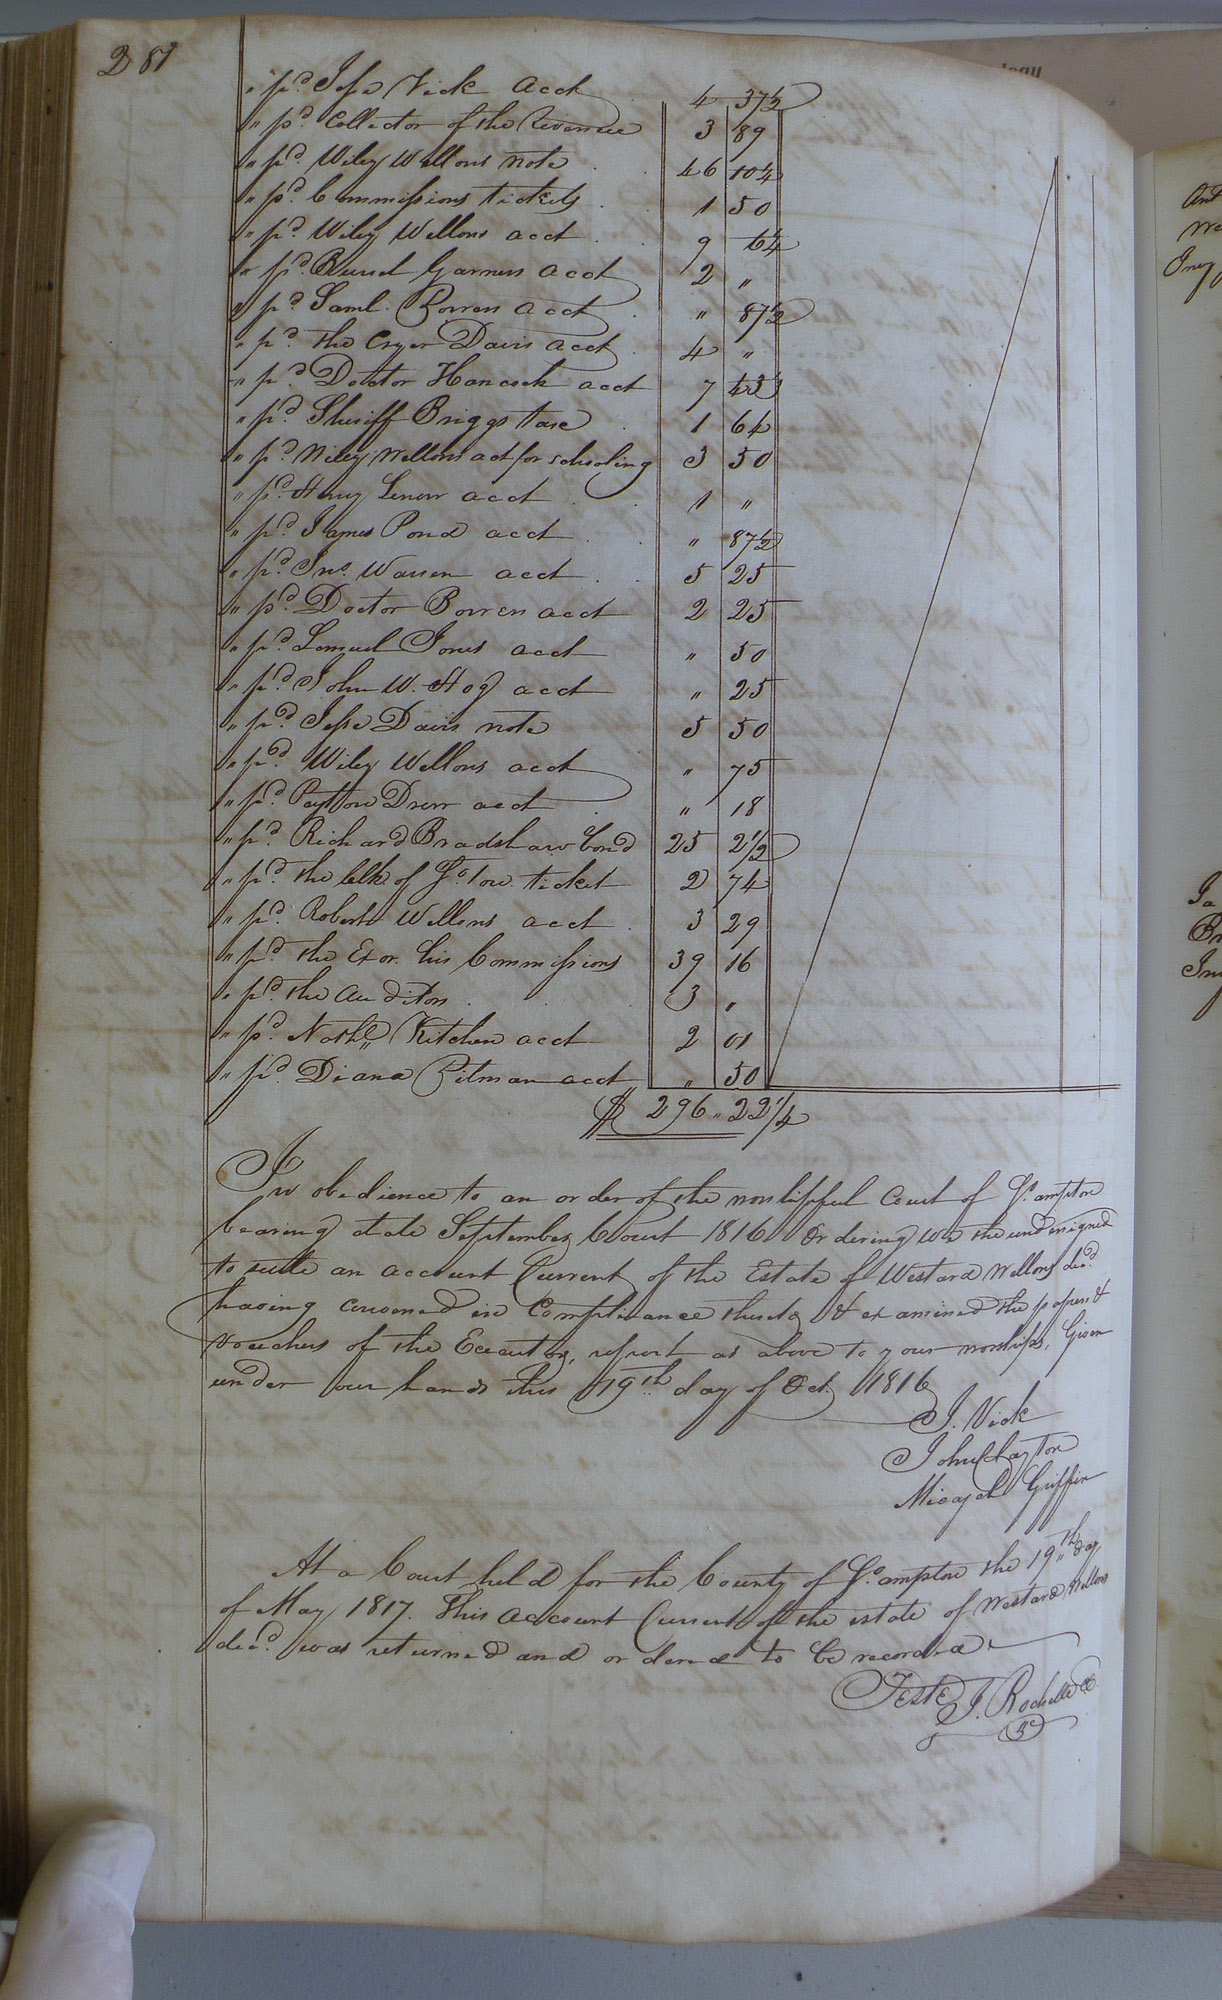 281
" pd. Jesse Vick acct 4 37½
" pd. Collector of the Revenue 3 89
" pd. Wiley Wellons note 46 10¼
" pd. Commissions tickets 1 50
" pd. Wiley Wellons acct 9 6¼
" pd. Garners acct 2 "
" pd. Saml. Bowers acct " 87½
" pd. the Cryer Davis acct 4 "
" pd. Doctor Hancock acct 7 43
" pd. Sheriff Briggs tax 1 64
" pd. Wiley Wellons act for schooling 3 50
" pd. Henry Lenow acct 1 "
" pd. James Pond acct " 87½
" pd. Jno. Warren acct 5 25
" pd. Doctor Bowers acct 2 25
" pd. Lemuel Jones acct " 50
" pd. John W. Hog acct " 25
" pd. Jesse Davis note 5 50
" pd. Wiley Wellons acct " 75
" pd. Peyton Drew acct " 18
" pd. Richard Bradshaw bond 25 2½
" pd. the Clk. of So.ton ticket 2 74
" pd. Roberts Wellons acct 3 29
" pd. the Exor. his Commissions 39 16
" pd. the Auditors 3 "
" pd. Nathl. Kitchen acct 2 01
" pd. Diana Pitman acct " 50
$ 296 " 22¼
In obedience to an order of the worshipful Court of So.ampton
bearing date September Court 1816. Ordering we the undersigned
to settle an account Current of the Estate of Westard Wellons decd.
having convened in Compliance thereto & examined the papers &
vouchers of the Executor, report as above to your worships, Given
under our hands this 19th. day of Oct. 1816
J. Vick
John Clayton
Micajah Griffin
At a Court held for the County of So.ampton the 19th. day
of May 1817. This Account Current of the estate of Westard Wellons
decd. was returned and ordered to be recorded
Teste J. Rochelle